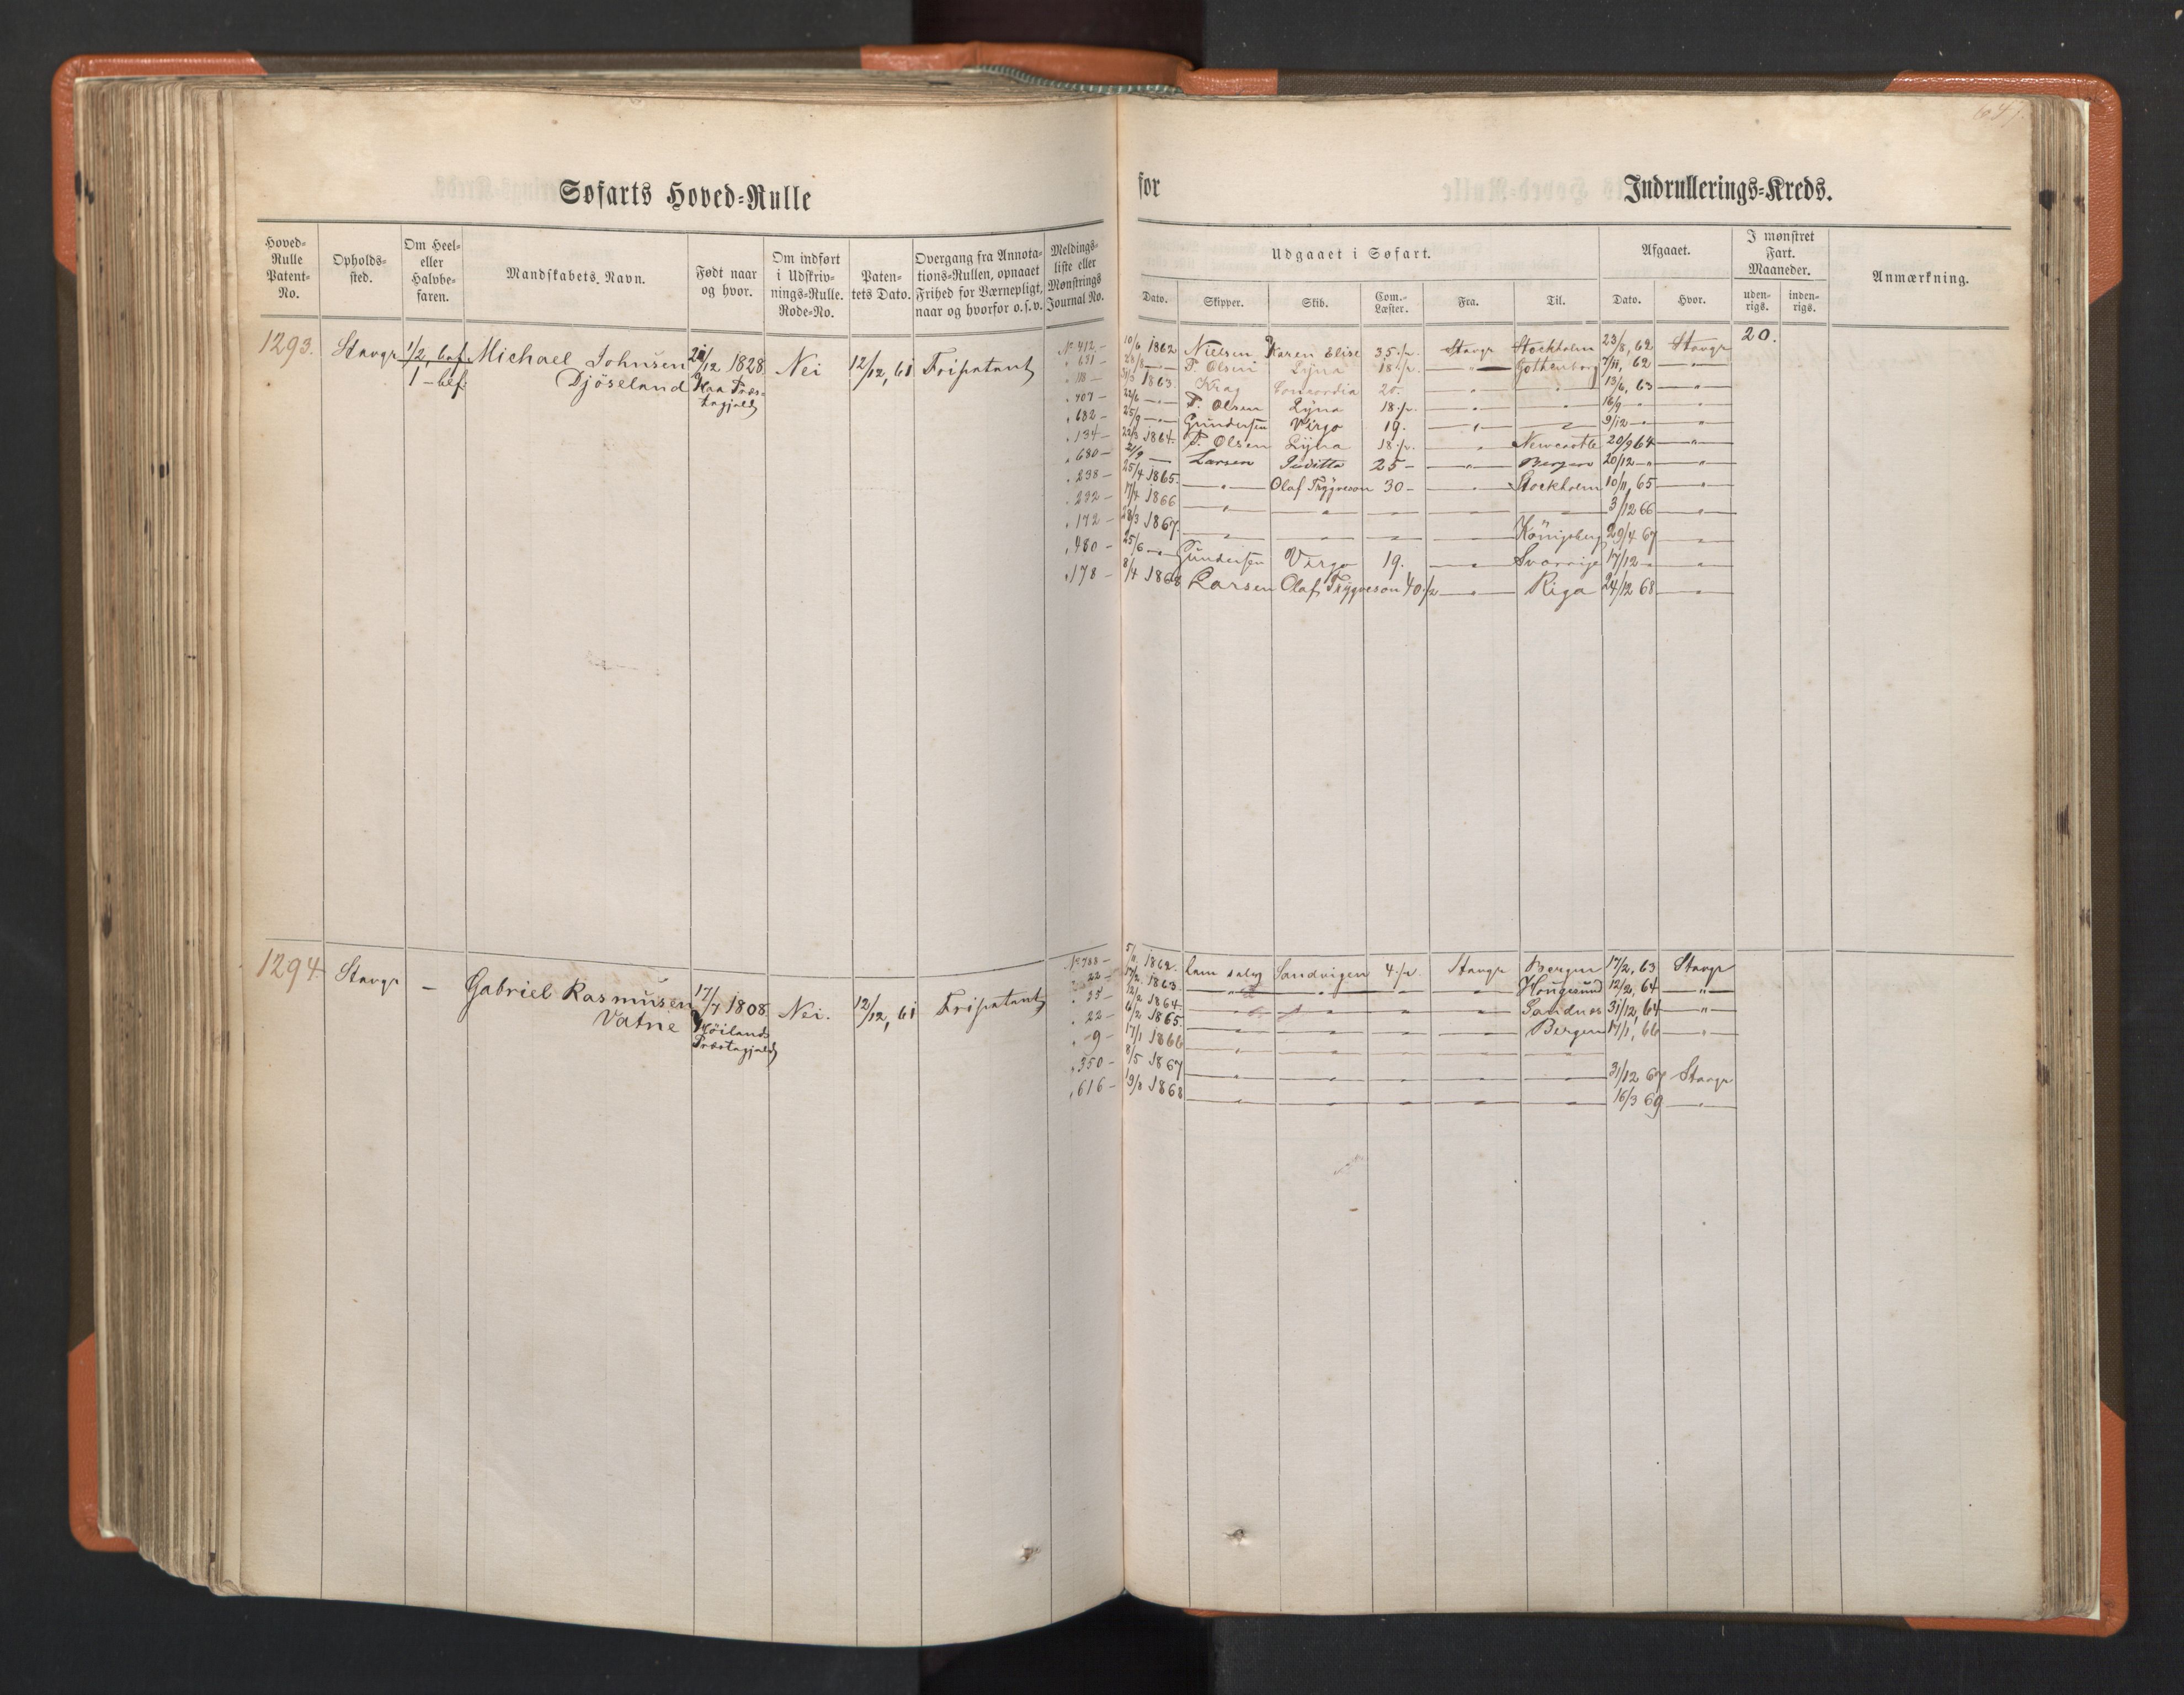 Søfarts Hoved-Rulle
Hoved-Rulle Patent-No.
Opholds-sted.
Om Heel- eller Halvbe-faren.
Mandskabets Navn.
Født naar og hvor.
Om indført i Udskriv-nings-Rulle. Rode-No.
Paten-tets Dato.
Overgang fra Annota-tions-Rullen, opnaaet Frihed for Værnepligt, naar og hvorfor o.s.v.
Meldings-liste eller Mønstrings Journal No.
1293. Stavgr 1/2 bef. Michael Johnsen 1828 Nei 12/12, 61 Fripatent
1 - bef. Djöseland Haa Præs-
tegjeld
No 412 -
" 631 -
" 118 -
" 407 -
" 682 -
" 134 -
" 680 -
" 238 -
" 232 -
" 172 -
" 480 -
" 178 -
1294. Stavgr - Gabriel Rasmusen 17/7 1808 Nei. 12/12, 61 Fripatent
Vatne Höilands
Præstegjeld
No 788 -
" 22 -
" 25 -
" 22 -
" 9 -
" 350 -
" 616 -
for Indrullerings-Kreds.
Udgaaet i Søfart.
Afgaaet.
I mønstret Fart. Maaneder.
Anmærkning.
Dato. Skipper. Skib. Com.-Læster. Fra. Til. Dato. Hvor. uden-rigs. inden-rigs.
10/6 1862 Nielsen Karen Elise 35 1/2 Stavgr Stockholm 23/8, 62 Stavgr 20.
23/8 - " - T. Olsen Lyna 18 1/2 - " - Gothenborg 7/11, 62 - " -
31/3 1863. Krag Concordia 20. " " 13/6, 63 "
22/6 - " - T. Olsen Lyna 18 1/2 - " - - " - 16/9 - " "
25/9 - " - Gundersen Virgo 19. - " - - " - 9/12 - " "
22/3 1864 T. Olsen Lyna 18 1/2 - " - Newcastle 20/9 64 - " -
2/9 - Larsen Juditta 25 - - " - Bergen 20/12 - " - " -
25/4 1865. - " - Olaf Trygveson 30 - - " - Stockholm 10/11, 65 - " -
17/4 1866 - " - - " - - " - - " - - " - 3/12 66 - " -
28/3 1867. - " - - " - - " - - " - Königsberg 29/4 67 - " -
25/6 - " - Gundersen Virgo 19. - " - Sverrige 17/12 - " - " -
8/4 1868 Larsen Olaf Trygveson 40 1/2 - " - Riga 24/12 68 - " -
5/11 1862. Sandvigen 4 1/2 Stavgr Bergen 17/2, 63 Stavgr
17/2 1863 - " - - " - - " - - " - Hougesund 12/2, 64 - " -
12/2 1864 - " - - " - - " - - " - Sandnes 31/12, 64 - " -
6/2 1865. - " - - " - - " - - " - Bergen 17/1, 66 - " -
17/1 1866 - " - - " - - " - - " - - " -
8/5 1867 - " - - " - - " - - " - - " - 31/12 67 Stavgr
19/8 1868 - " - - " - - " - - " - - " - 16/3 69 - " -